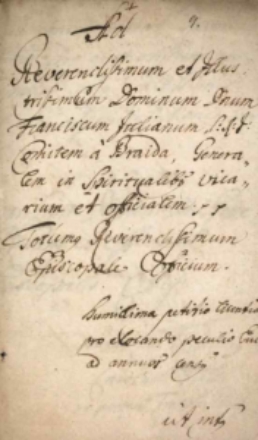 Ad
Reverendissimum et Illus
trissimum Dominum Dnum
Franciscum Julianum S:R:I:
Comitem à Braida, Genera-
lem in Spiritualibs Vica-
rium et officialem
Totumq Reverendissimum
Episcopale Officium.
humillima petitio
pro elocando peculio
ad annuos cens
ut int